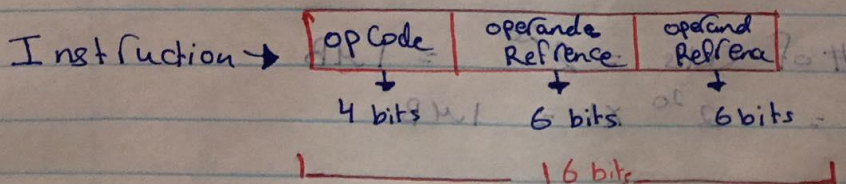 Instruction → opCode operande Refrence operand Refrenca
4 bits 6 bits. 6 bits
16 bits